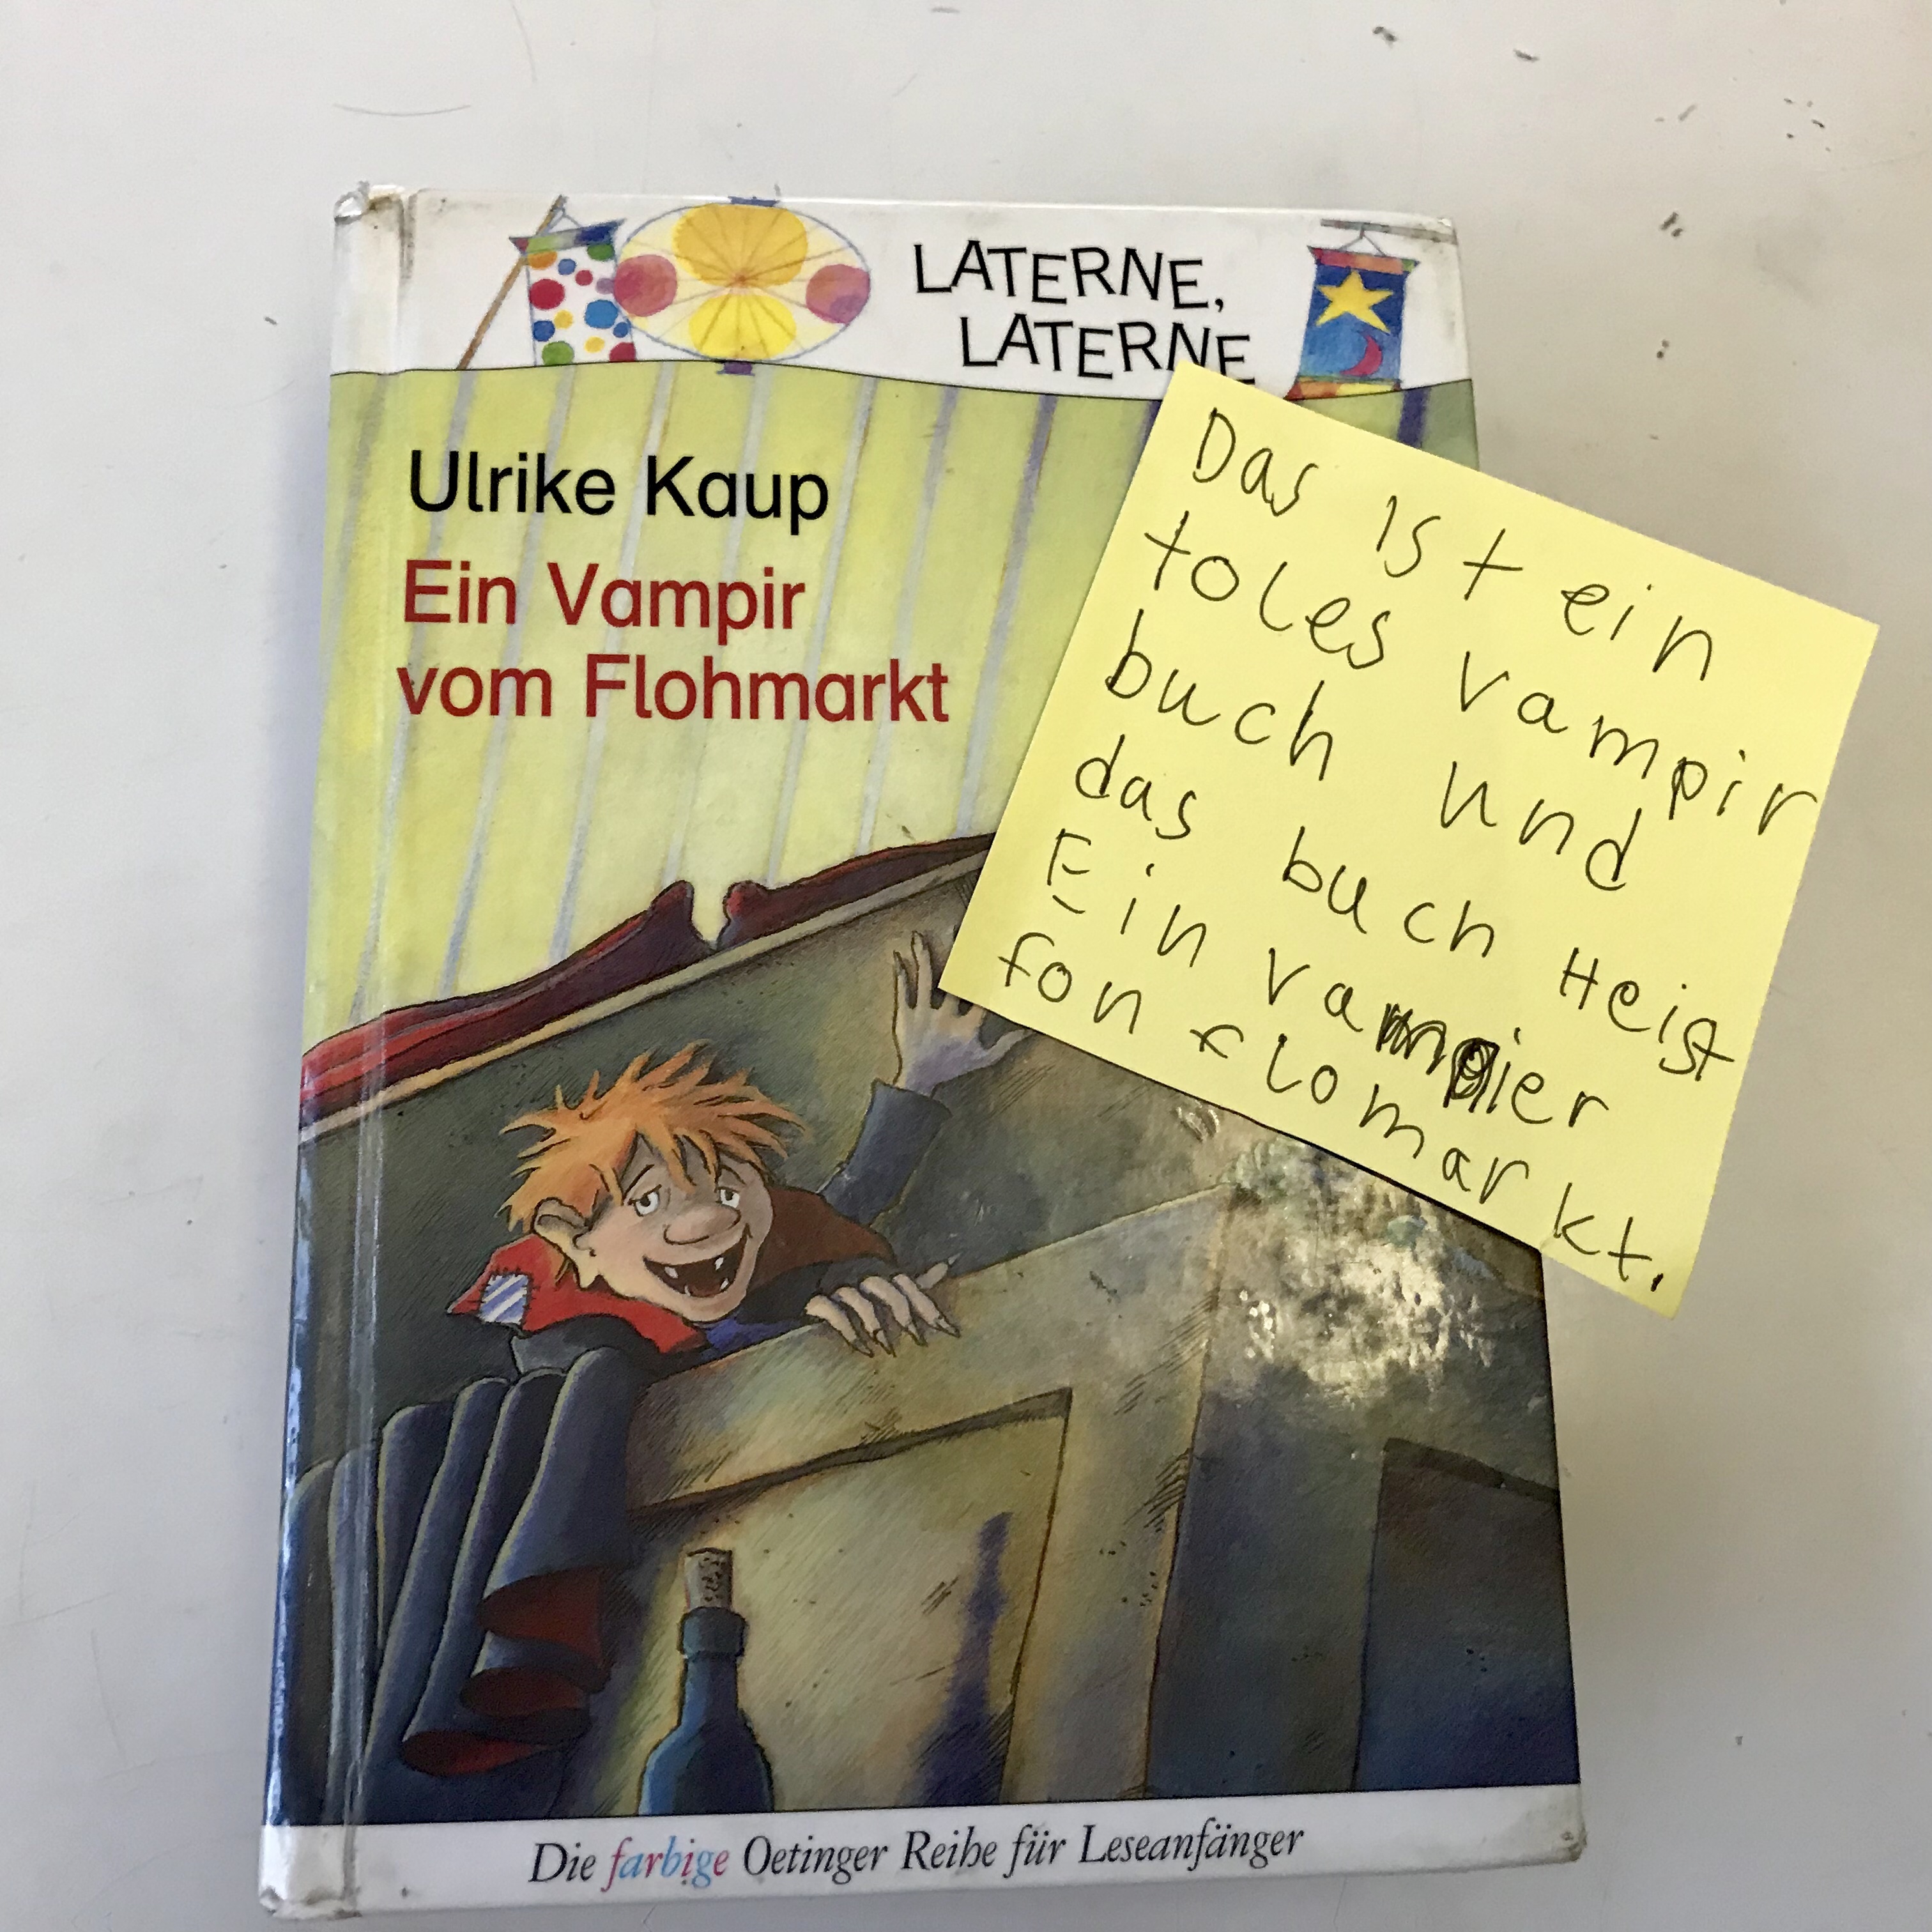 LATERNE,
LATERNE
Ulrike Kaup
Ein Vampir
vom Flohmarkt
Das ist ein
toles vampir
buch und
das buch Heist
Ein vampier
fon flomarkt.
Die farbige Oetinger Reihe für Leseanfänger